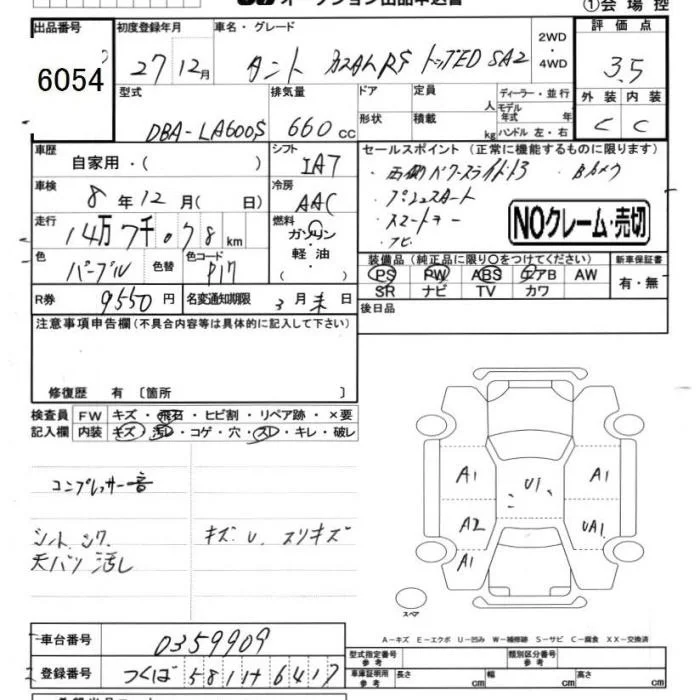 オークション出品申込書
①会場控
出品番号
6054
初度登録年月
27年12月
車名・グレード
タント カスタムRS トップED SA2
2WD・4WD
評価点
3.5
型式
DBA-LA600S
排気量
660cc
ドア
形状
定員 人
積載 kg
ディーラー・並行
モデル年式 年式
ハンドル 左・右
外装 内装
C C
車歴
自家用・( )
シフト
IA7
セールスポイント(正常に機能するものに限ります)
・両側パワースライドドア ・Bカメラ
・プッシュスタート
・スマートキー
・ナビ
NOクレーム・売切
車検
8年12月( 日)
冷房
AAC
走行
14万7千078km
燃料
ガソリン
軽油
( )
色
パープル
色替
色コード
P17
装備品(純正品に限り○をつけてください)
PS PW ABS エアB AW
SR ナビ TV カワ
新車保証書
有・無
R券
9550円
名変通知期限
3月末日
後日品
注意事項申告欄(不具合内容等は具体的に記入して下さい)
修復歴 有〔箇所 〕
検査員記入欄
FW キズ・飛石・ヒビ割・リペア跡・×要
内装 キズ・汚レ・コゲ・穴・スレ・キレ・破レ
コンプレッサー音
シート シワ
天バリ 汚し
キズ U. スリキズ
A1 U1 A1
A2 UA1
A1
スペア
A-キズ E-エクボ U-凹み W-補修跡 S-サビ C-腐食 XX-交換済
車台番号
0359909
登録番号
つくば 581 け 6417
型式指定番号 参考
類別区分番号 参考
車庫証明用 参考
長さ cm 幅 cm 高さ cm